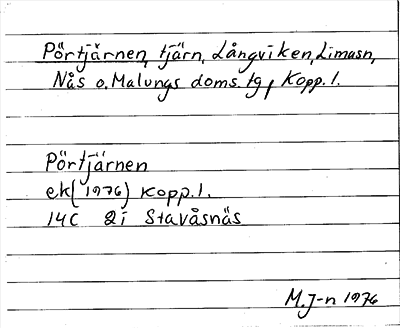 Pörtjärnen, tjärn, Långviken, Limasn,
Nås o. Malungs doms. tg, Kopp. l.
Pörtjärnen
ek (1976) Kopp. l.
14C 2i Stavåsnäs
M.J-n 1976